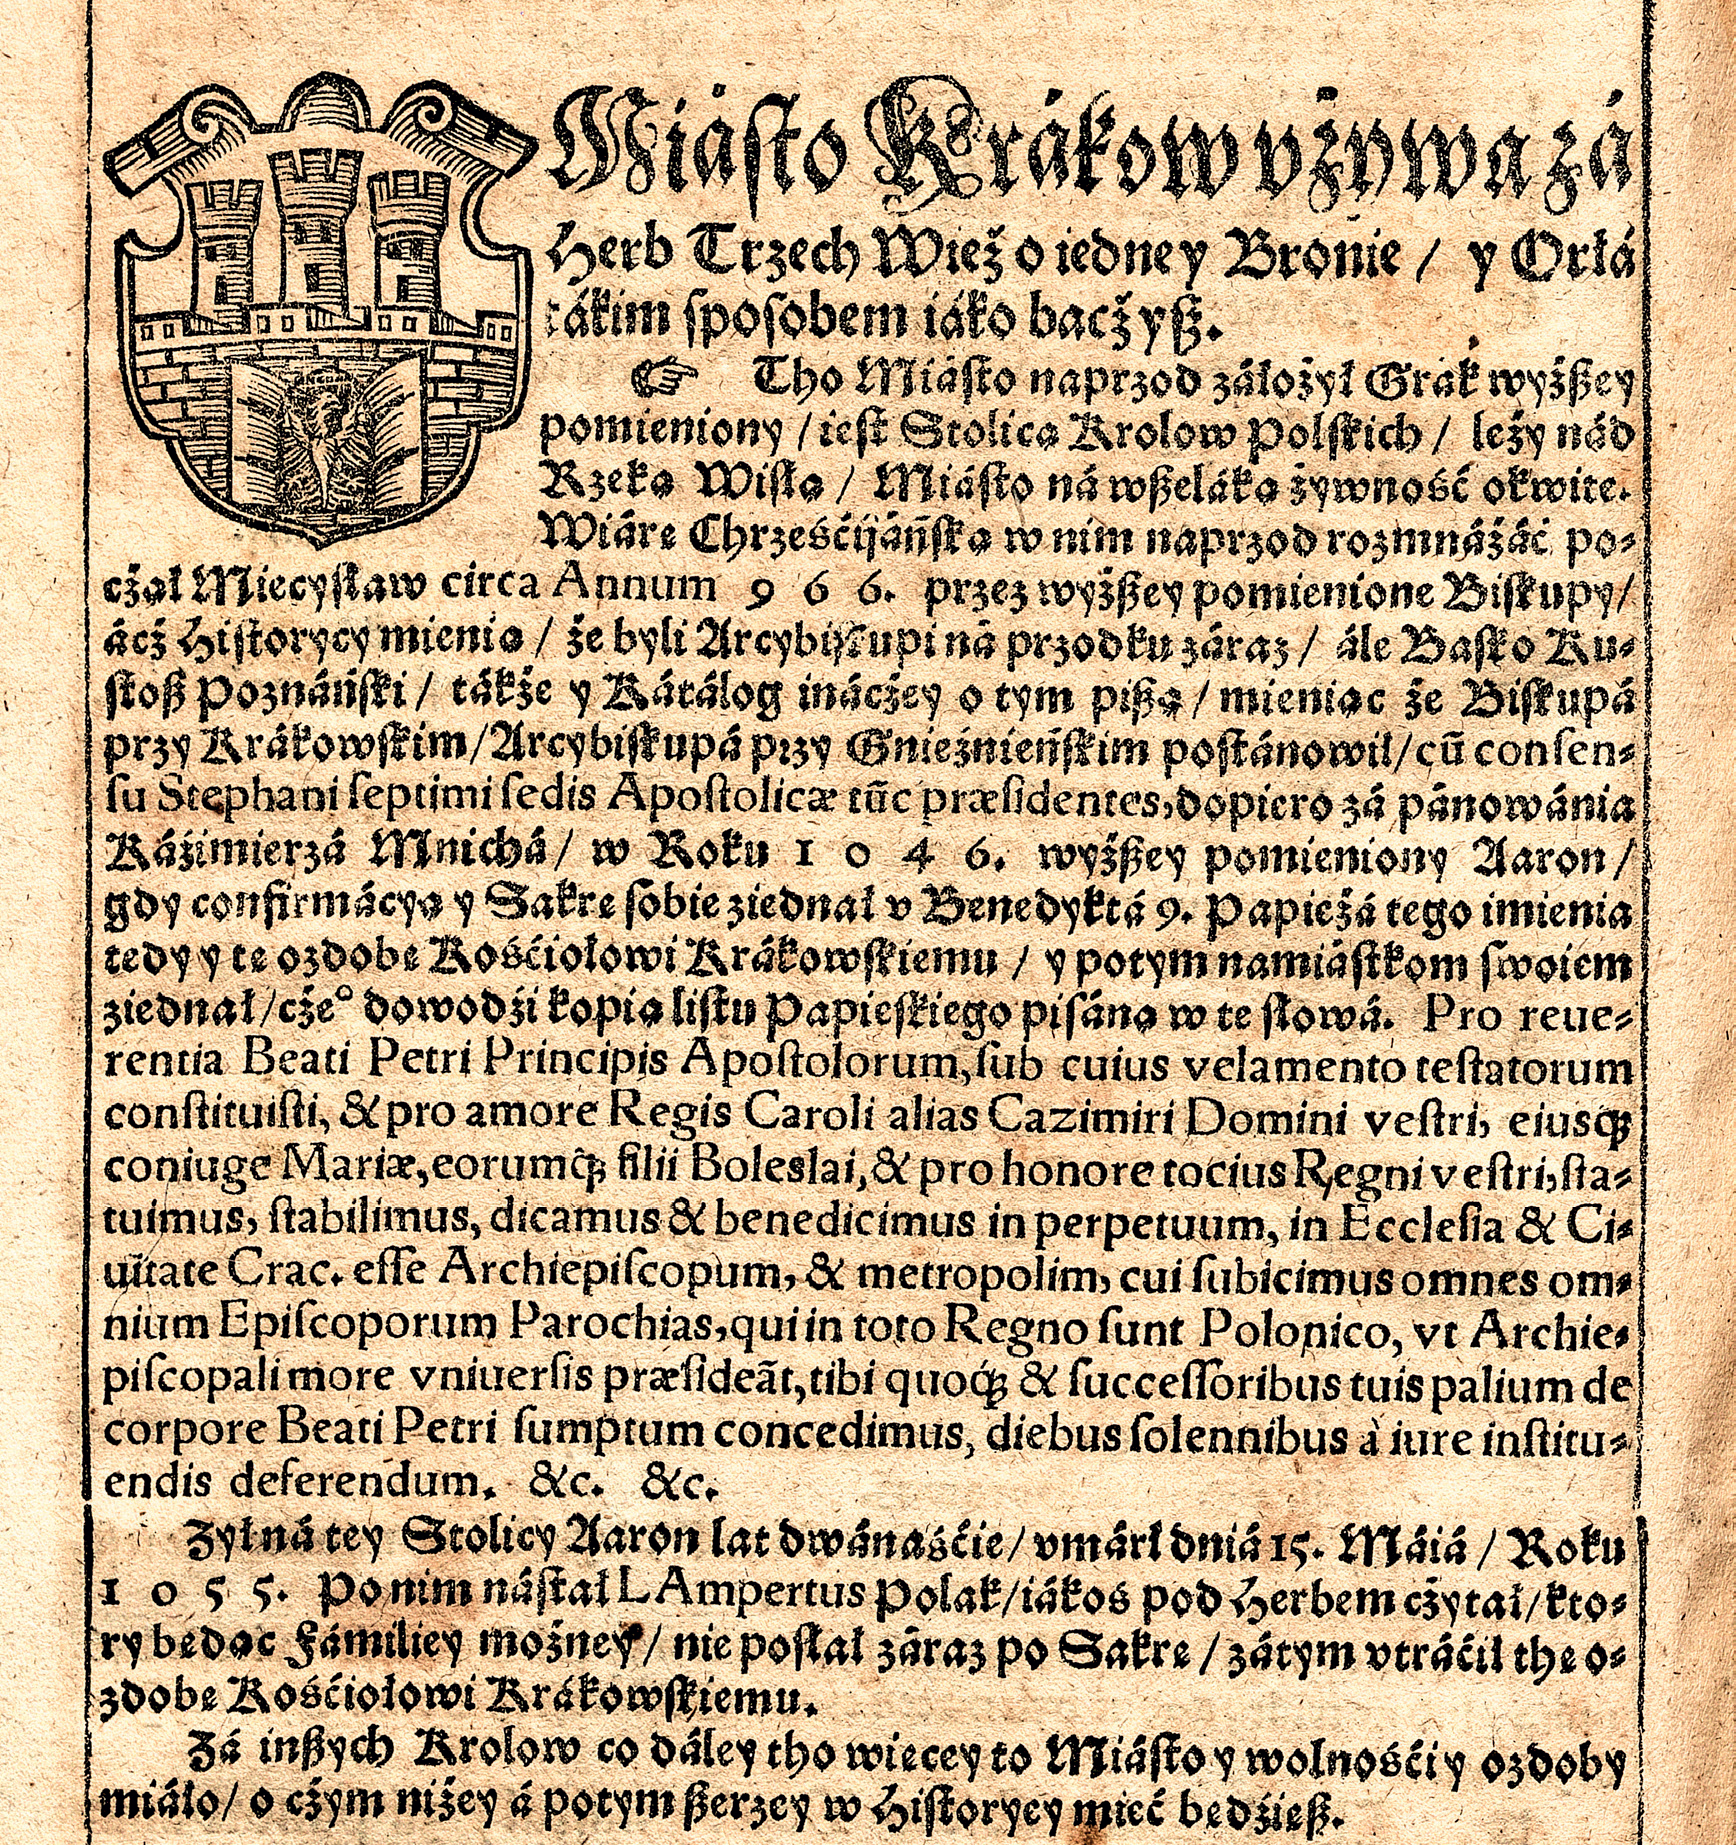 Miásto Krákow vżywa zá
Herb Trzech Wież o iedney Bronie / y Orłá
tákim sposobem iáko bacżyß.
☞ Tho Miásto naprzod záłożył Grák wyżßey
pomieniony / iest Stolicą Krolow Polskich / leży nád
Rzeką Wisłą / Miásto ná wßeláką żywność okwite.
Wiárę Chrześćijáńską w nim naprzod rozmnáżáć po⸗
cżął Miecysław circa Annum 9 6 6. przez wyżßey pomienione Biskupy /
ácż Historycy mienią / że byli Arcybiskupi ná przodku záraz / ále Basko Ku⸗
stoß Poznáński / tákże y Kátálog inácżey o tym pißą / mieniąc że Biskupá
przy Krákowskim / Arcybiskupá przy Gnieźnieńskim postánowił / cũ consen⸗
su Stephani septimi sedis Apostolicæ tũc præsidentes, dopiero zá pánowánia
Káźimierzá Mnichá / w Roku 1 0 4 6. wyżßey pomieniony Aaron /
gdy confirmácyą y Sakrę sobie ziednał v Benedyktá 9. Papieżá tego imienia
tedy y tę ozdobę Kośćiołowi Krákowskiemu / y potym namiástkom swoiem
ziednał / cżeº dowodźi kopia listu Papieskiego pisána w te słowá. Pro reue⸗
rentia Beati Petri Principis Apostolorum, sub cuius velamento testatorum
constituisti, & pro amore Regis Caroli alias Cazimiri Domini vestri, eiusq;
coniuge Mariæ, eorumq; filii Boleslai, & pro honore tocius Regni vestri, sta⸗
tuimus, stabilimus, dicamus & benedicimus in perpetuum, in Ecclesia & Ci⸗
uitate Crac. esse Archiepiscopum, & metropolim, cui subicimus omnes om⸗
nium Episcoporum Parochias, qui in toto Regno sunt Polonico, vt Archie⸗
piscopali more vniuersis præsideãt, tibi quoq; & successoribus tuis palium de
corpore Beati Petri sumptum concedimus, diebus solennibus à iure institu⸗
endis deferendum. &c. &c.
Zył ná tey Stolicy Aaron lat dwánaśćie / vmárł dniá 15. Máiá / Roku
1 0 5 5. Po nim nástał LAmpertus Polak / iákoś pod Herbem cżytał / kto⸗
ry będąc Fámiliey możney / nie posłał záraz po Sakrę / zátym vtráćił thę o⸗
zdobę Kośćiołowi Krákowskiemu.
Zá inßych Krolow co dáley tho więcey to Miásto y wolnośći y ozdoby
miáło / o cżym niżey á potym ßerzey w Historyey mieć będźieß.